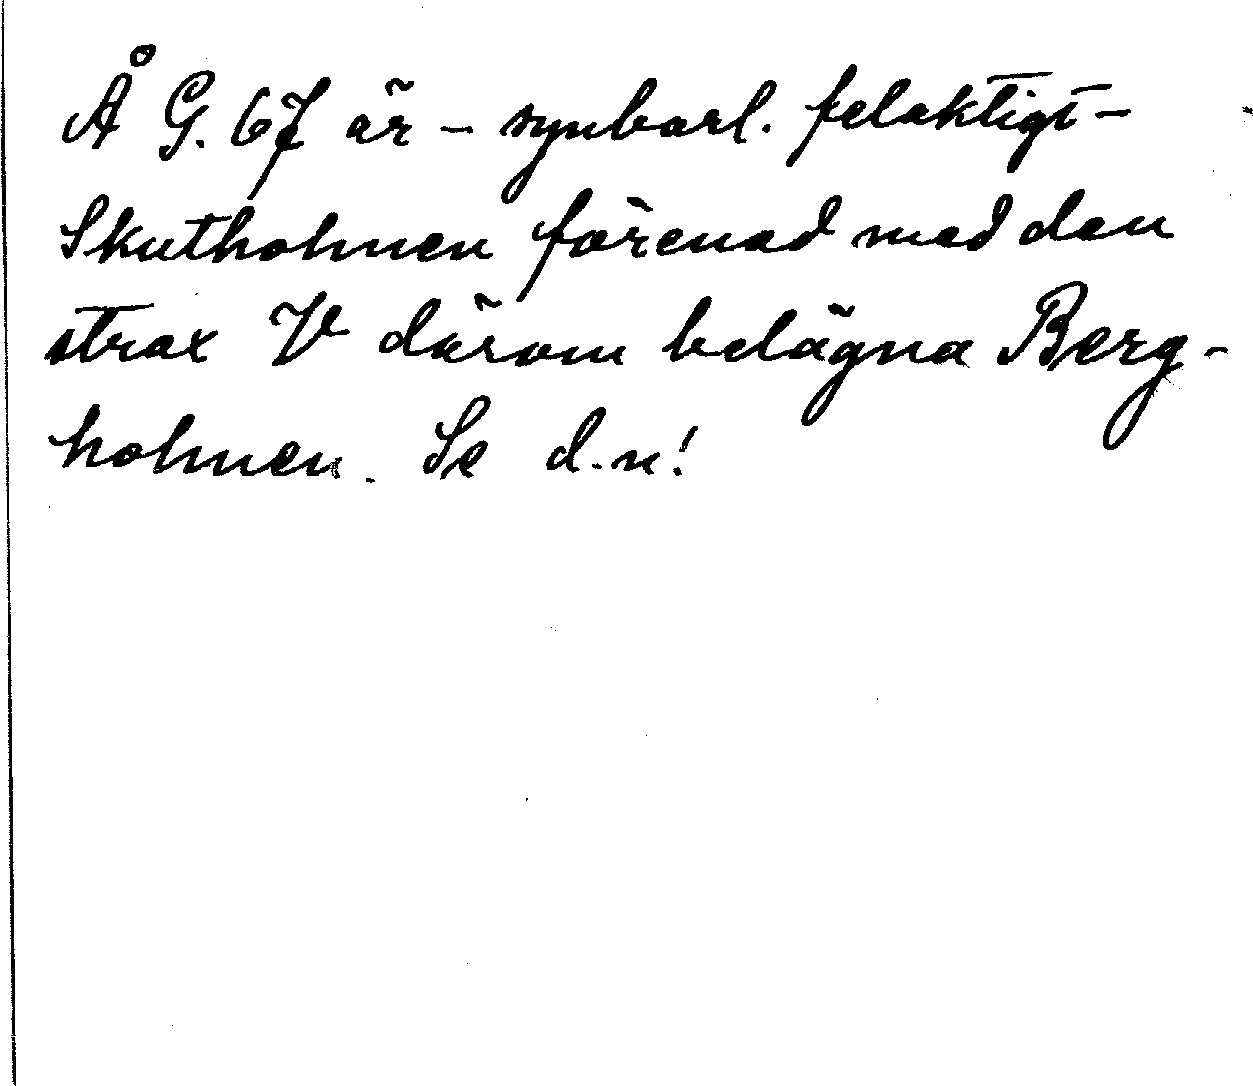 Å G. 67 är – synbarl. felaktigt –
Skutholmen förenad med den
strax V därom belägna Berg-
holmen. Se d.n!